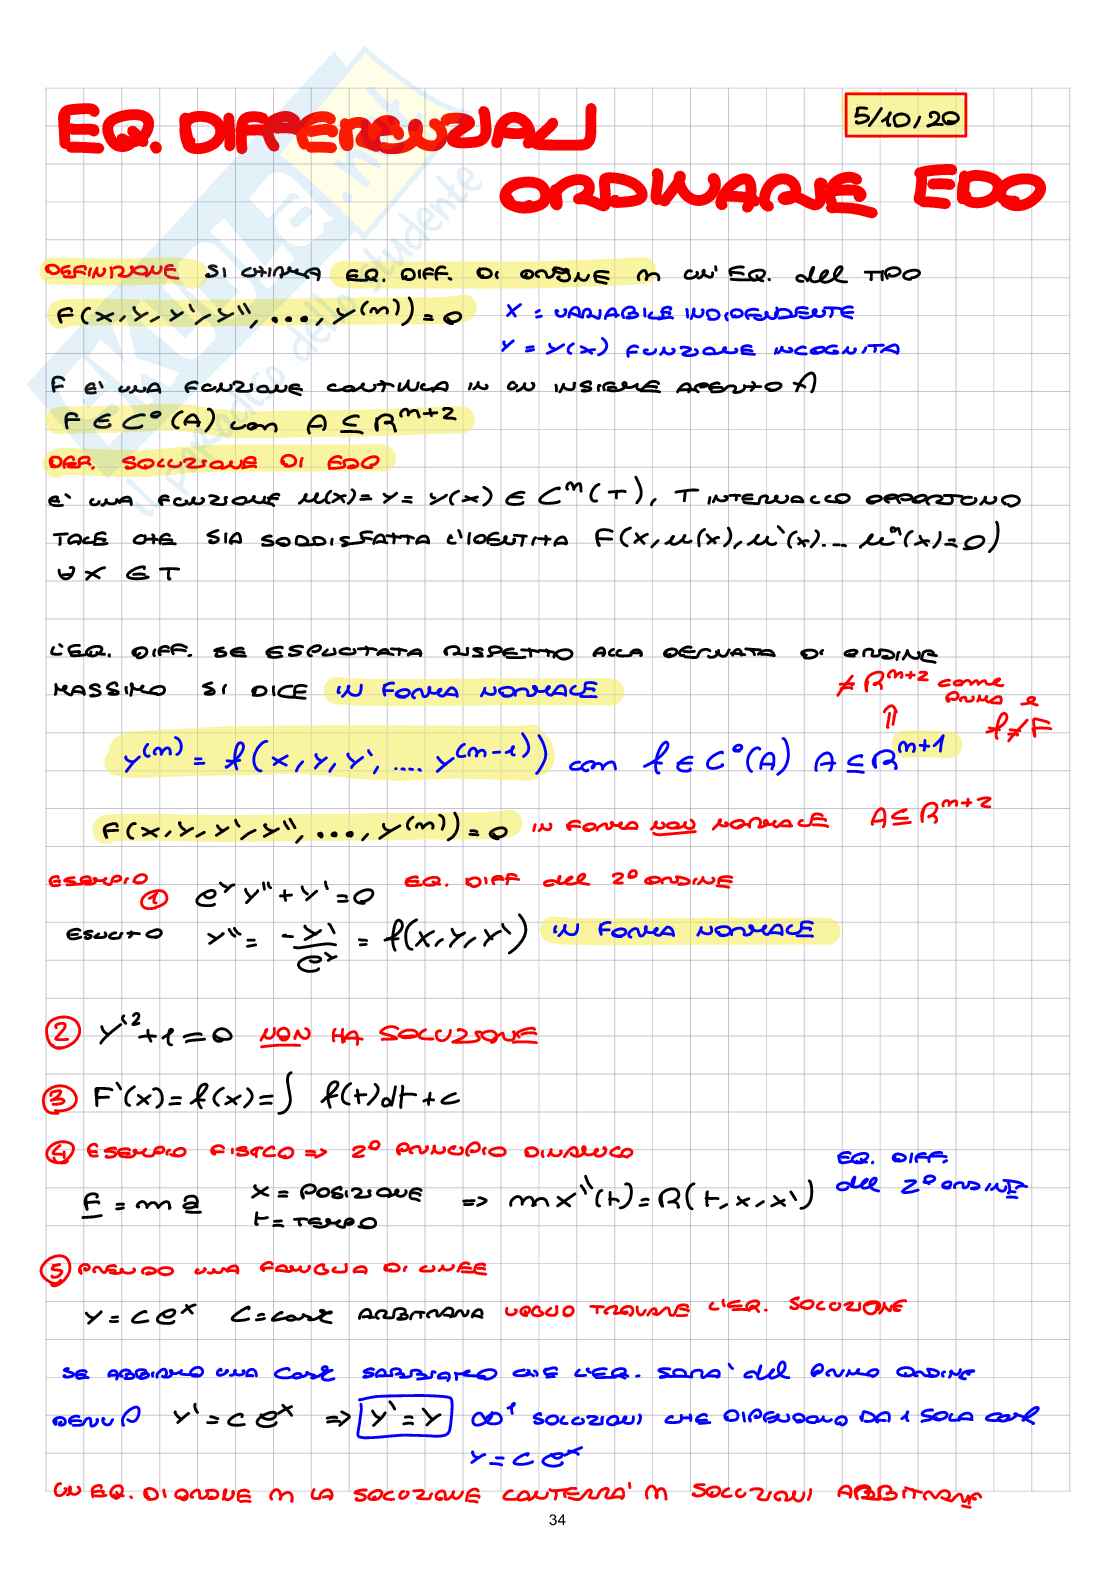 EQ. DIFFERENZIALI
5/10/20
ORDINARIE EDO
SKUOLA.net
il paradiso dello studente
DEFINIZIONE SI CHIAMA EQ. DIFF. DI ORDINE m UN'EQ. del TIPO
F(x,y,y',y'',...,y^(m))=0 x = VARIABILE INDIPENDENTE
y = y(x) FUNZIONE INCOGNITA
F E' UNA FUNZIONE CONTINUA IN UN INSIEME APERTO A
F ∈ C°(A) con A ⊆ R^m+2
DEF. SOLUZIONE DI EDO
E' UNA FUNZIONE u(x)=y=y(x) ∈ C^m(T), T INTERVALLO OPPORTUNO
TALE CHE SIA SODDISFATTA L'IDENTITA F(x,u(x),u'(x).... u^m(x)=0)
∀x ∈ T
L'EQ. DIFF. SE ESPLICITATA RISPETTO ALLA DERIVATA DI ORDINE
MASSIMO SI DICE IN FORMA NORMALE
≠ R^m+2 come
PRIMA e
⇑ f≠F
y^(m) = f(x,y,y',.... y^(m-1)) con f ∈ C°(A) A ⊆ R^m+1
F(x,y,y',y'',...,y^(m))=0 IN FORMA NON NORMALE A ⊆ R^m+2
ESEMPIO
① e^y y''+y'=0 EQ. DIFF del 2° ORDINE
ESPLICITO y''= -y'/e^y = f(x,y,y') IN FORMA NORMALE
② y'²+1=0 NON HA SOLUZIONE
③ F'(x)=f(x)=∫ f(t)dt+c
④ ESEMPIO FISICO => 2° PRINCIPIO DINAMICO
F = m a x = POSIZIONE
t = TEMPO
=> m x''(t)=R(t,x,x') EQ. DIFF.
del 2° ORDINE
⑤ PRENDO UNA FAMIGLIA DI LINEE
y = c e^x C=cost ARBITRARIA VOGLIO TROVARE L'EQ. SOLUZIONE
SE ABBIAMO UNA cost SAPPIAMO CHE L'EQ. SARA' del PRIMO ORDINE
y'=c e^x => y'=y ∞¹ SOLUZIONI CHE DIPENDONO DA 1 SOLA cost
y=c e^x
UN EQ. DI ORDINE m LA SOLUZIONE CONTERRA' m SOLUZIONI ARBITRARIE
34